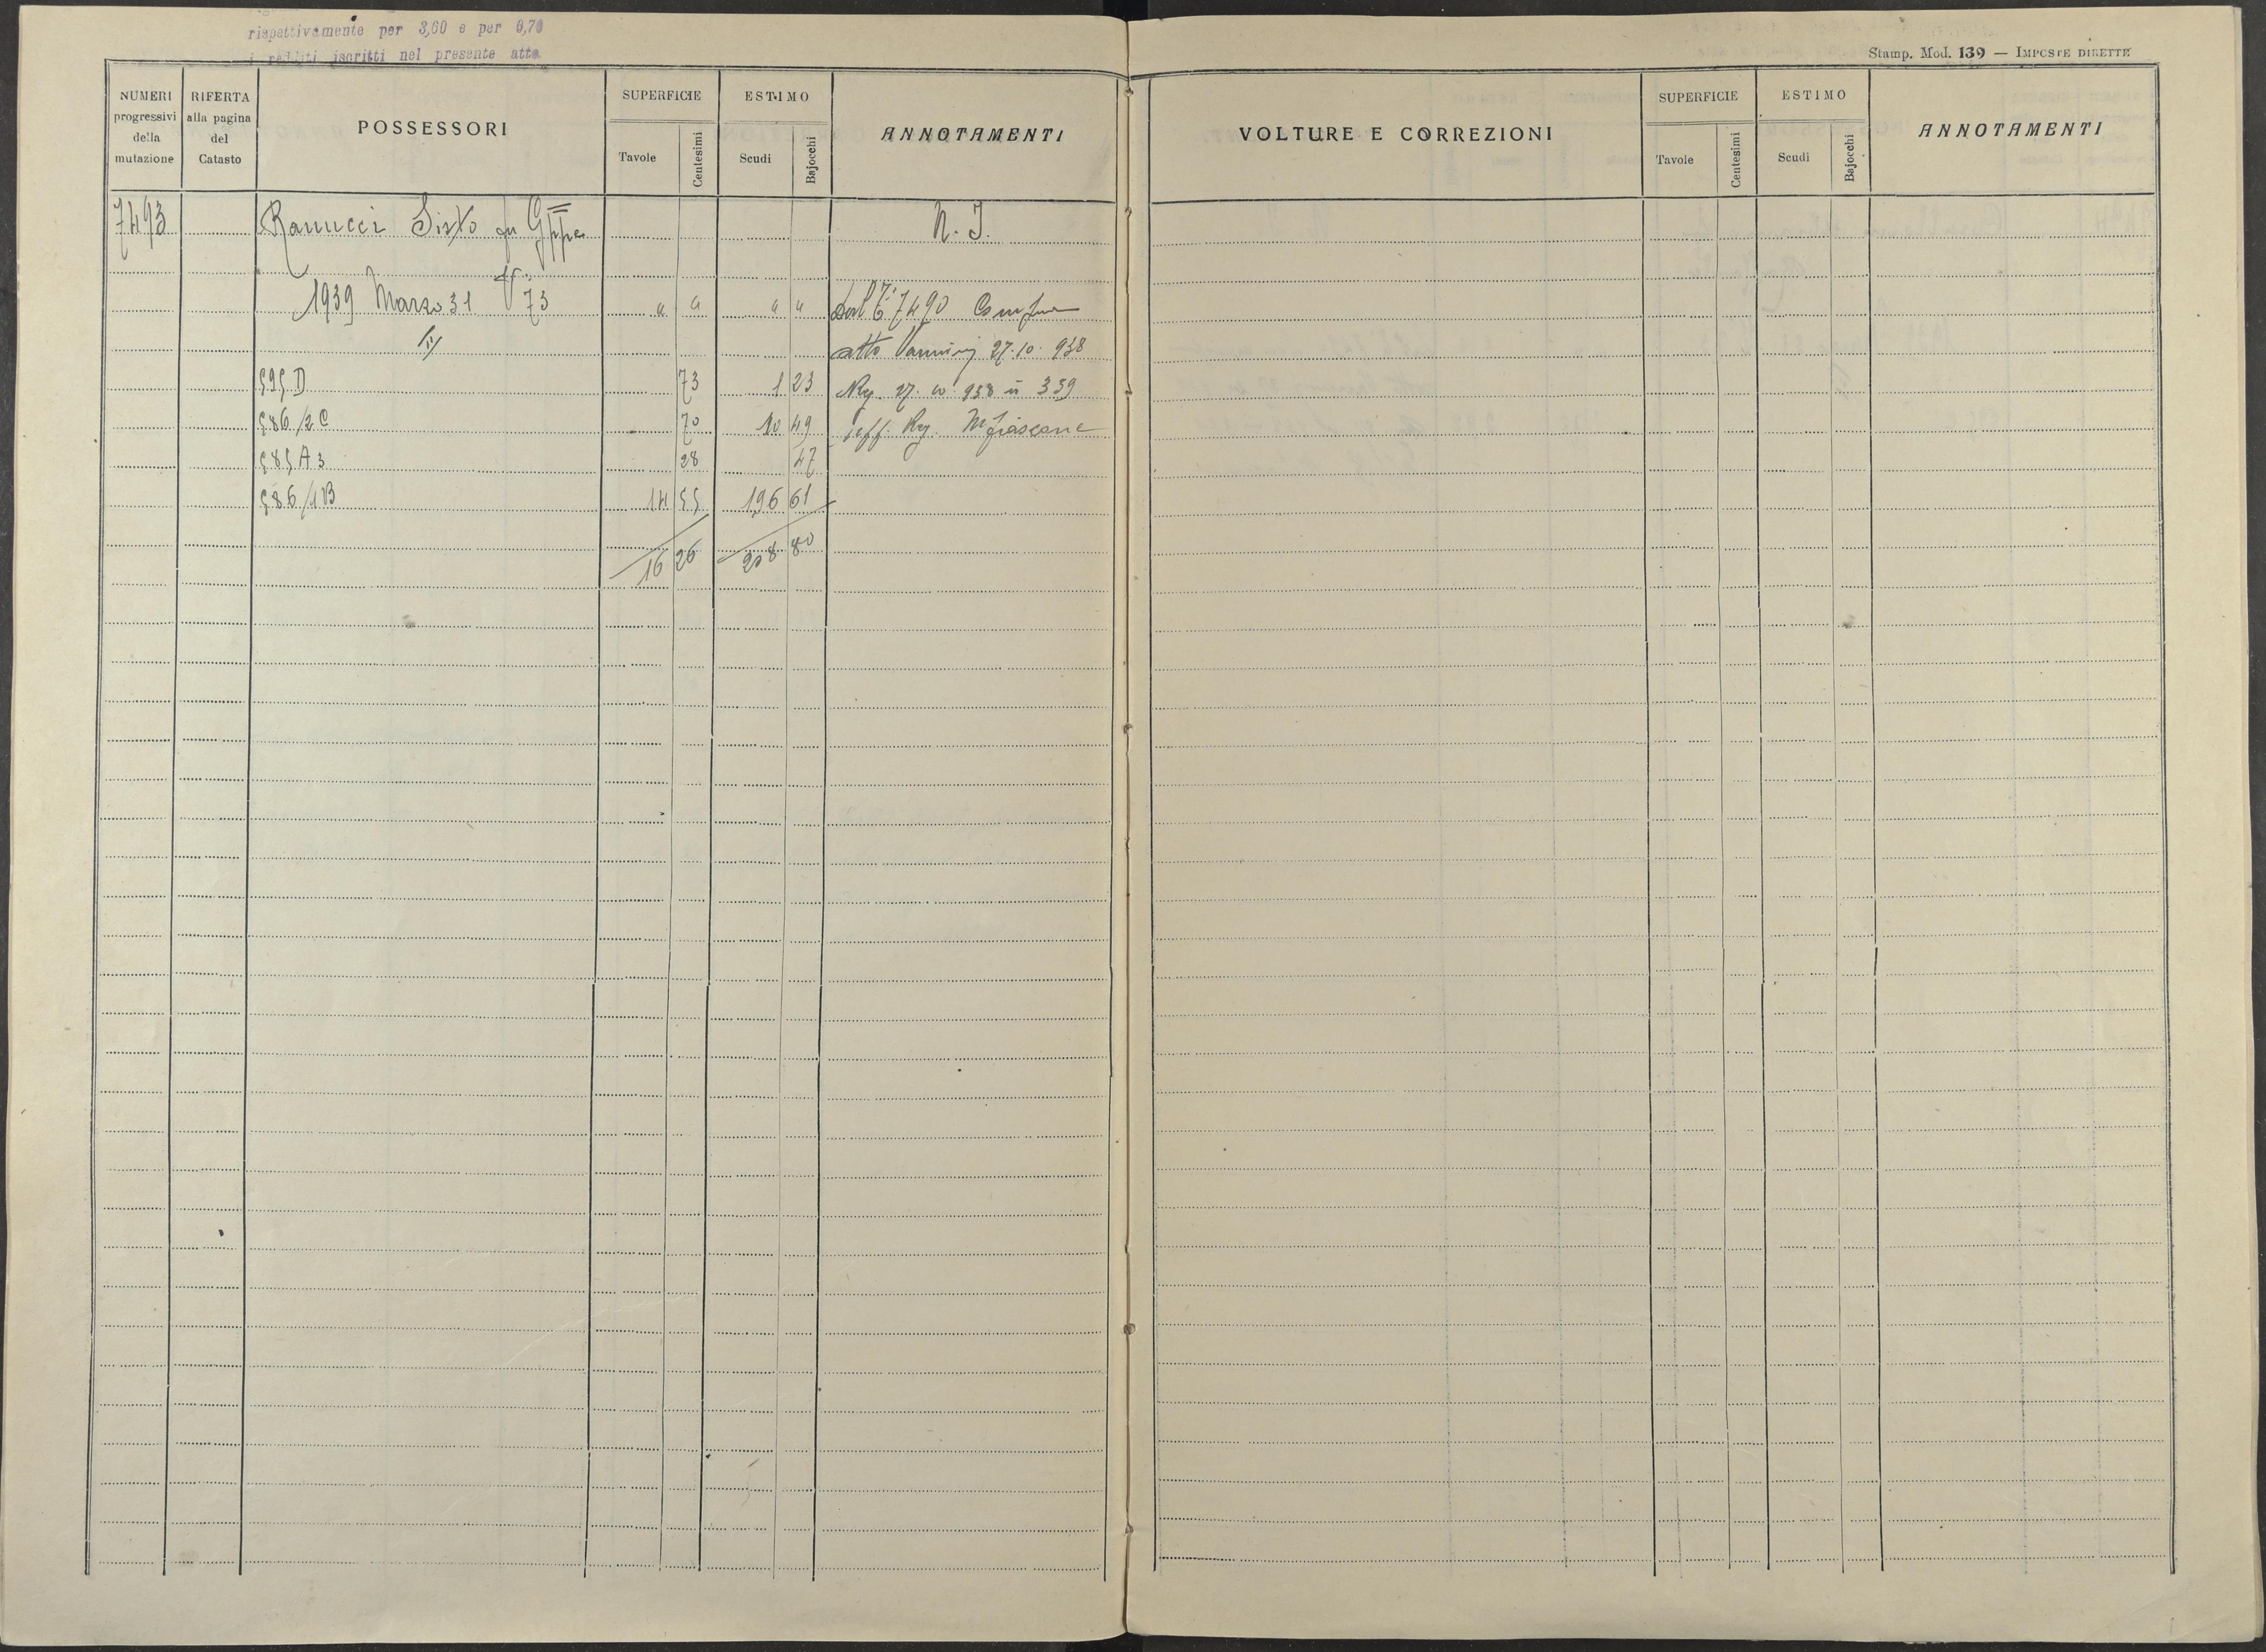 rispettivamente per 3,60 e per 0,70
i redditi iscritti nel presente atto
Stamp. Mod. 139 — IMPOSTE DIRETTE
NUMERI progressivi della mutazione
RIFERTA alla pagina del Catasto
POSSESSORI
SUPERFICIE
Tavole
Centesimi
ESTIMO
Scudi
Bajocchi
ANNOTAMENTI
VOLTURE E CORREZIONI
SUPERFICIE
Tavole
Centesimi
ESTIMO
Scudi
Bajocchi
ANNOTAMENTI
7493 Ranucci Sisto fu Gppe N. I.
1939 Marzo 31 V. 73 " " " " dal 7490 Compra
atto 27.10.938
595 D 73 1 23 Reg. 27.10.938 n 359
586/2C 70 10 49 Uff. Reg. Mfiascone
585 A3 28 47
586/1B 14 55 196 61
16 26 208 80